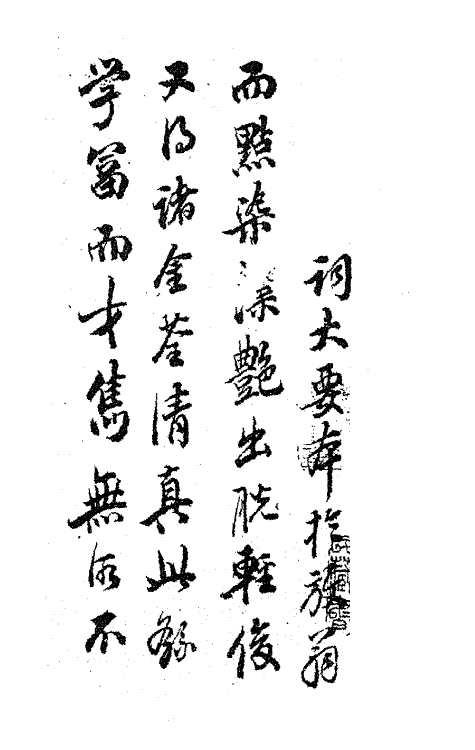 詞大要本於放翁
而點染深艷出脫輕俊
又得諸金荃清真此繇
學富而才雋無所不